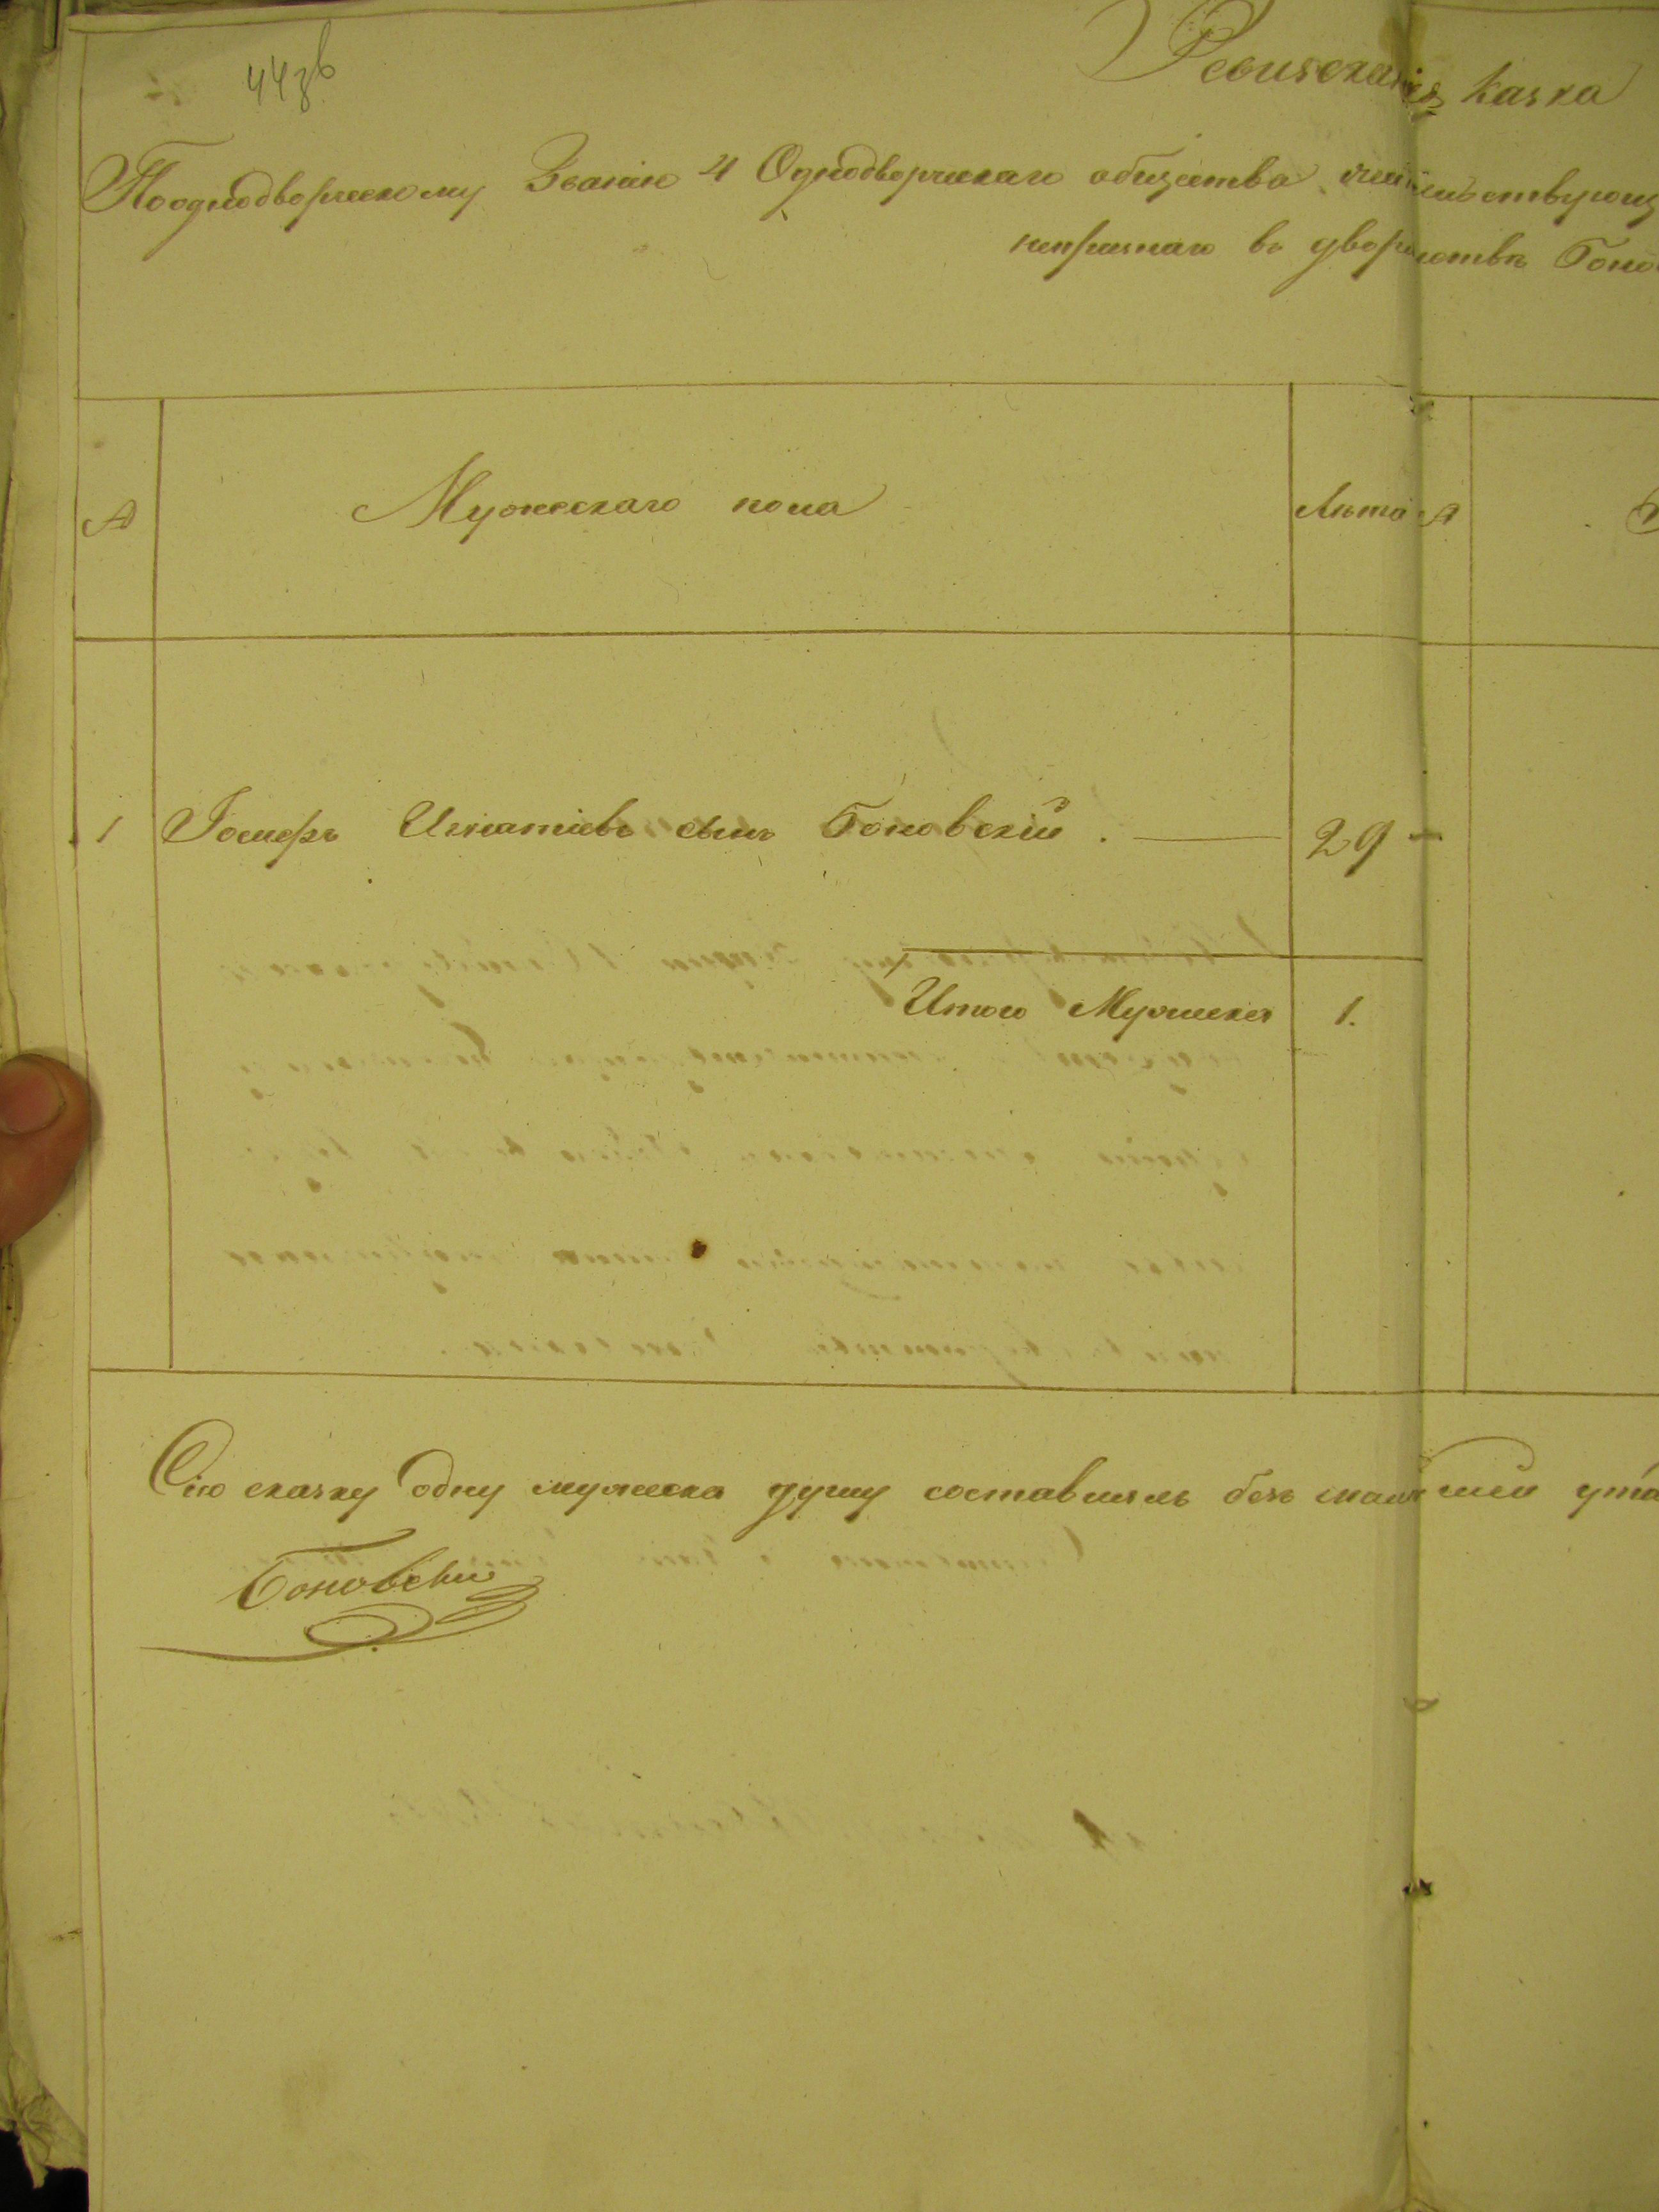 44зв
Ревизская Сказка
По однодворческому Званію 4 Однодворческаго общества
непризнаго въ дворянствѣ
№ Мужескаго пола Лѣта №
1 Іосифъ Игнатіевъ сынъ Боновскій. 29
Итого Мужеска 1.
Сію сказку одну мужеска душу составлялъ безъ малѣйшей
Боновскій